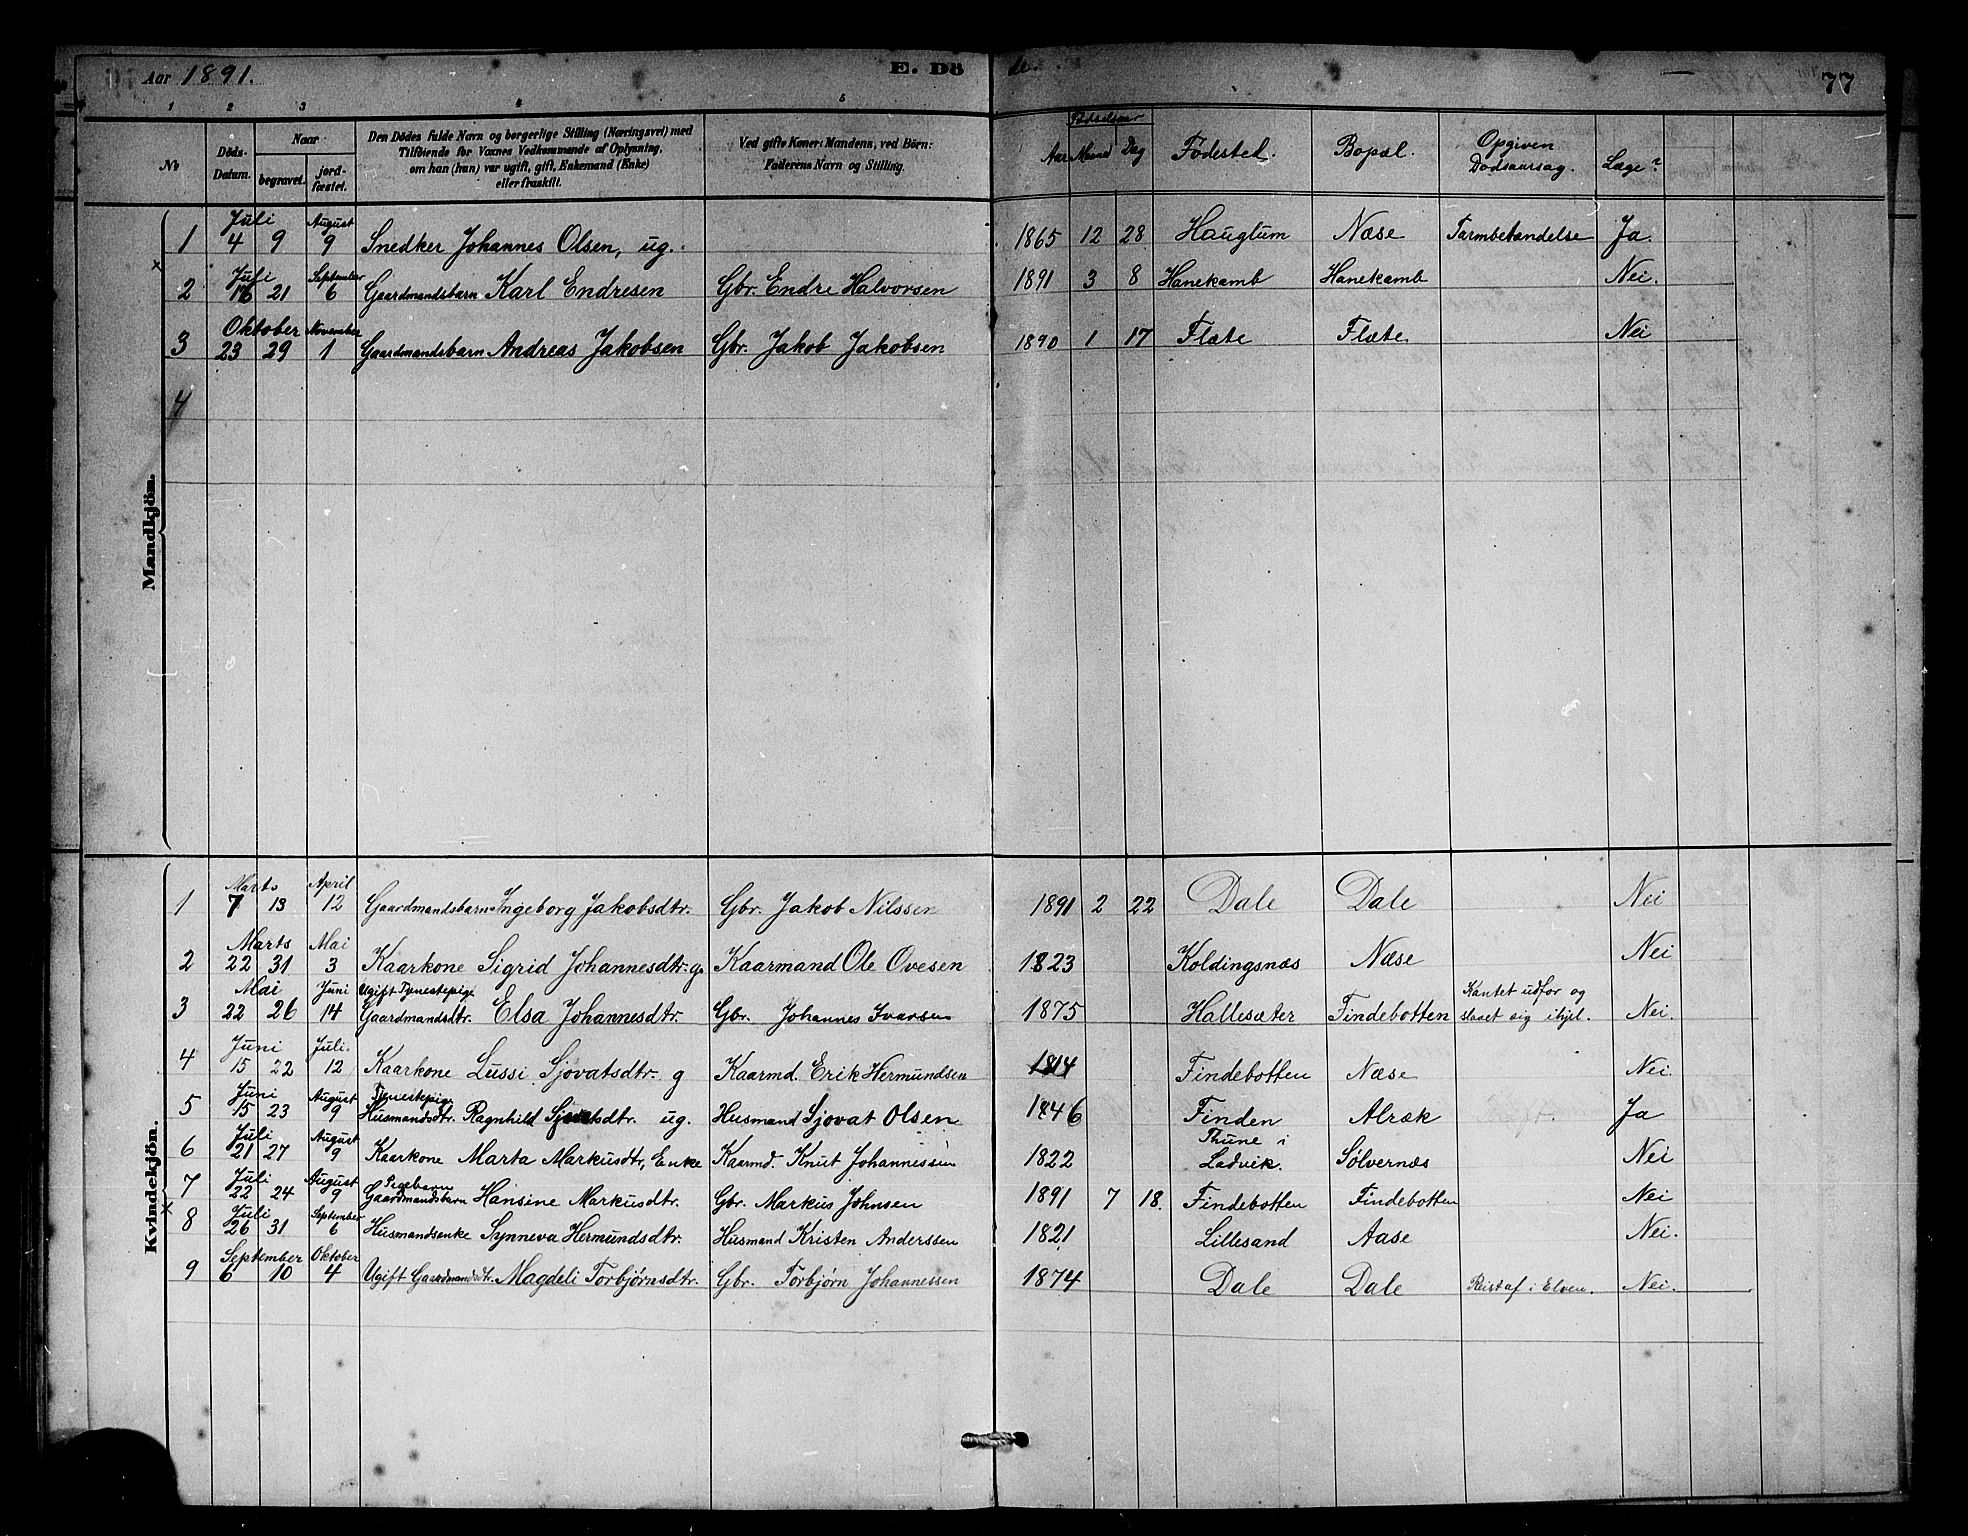 Aar 1891. E. Dö de. 77
1 2 3 4 5
№ Döds-Datum. Naar begravet. jordfæstet. Den Dödes fulde Navn og borgerlige Stilling (Næringsvei) med Tilföiende for Voxnes Vedkommende af Oplysning, om han (hun) var ugift, gift, Enkemand (Enke) eller fraskilt. Ved gifte Koner: Mandens, ved Börn: Faderens Navn og Stilling. Fødselsaar Aar Maaned Dag Fødested. Bopæl. Opgiven Dødsaarsag. Læge?
Mandkjön.
Juli August
1 4 9 9 Snedker Johannes Olsen, ug. 1865 12 28 Hauglum Næse Tarmbetændelse Ja.
Juli September
2 16 21 6 Gaardmandsbarn Karl Endresen Gbr. Endre Halvorsen 1891 3 8 Hanekamb Hanekamb Nei.
Oktober November
3 23 29 1 Gaardmandsbarn Andreas Jakobsen Gbr. Jakob Jakobsen 1890 1 17 Flæte Flæte. Nei
4
Kvindekjön.
Marts April
1 7 13 12 Gaardmandsbarn Ingeborg Jakobsdtr. Gbr. Jakob Nilssen 1891 2 22 Dale Dale Nei
Marts Mai
2 22 31 3 Kaarkone Sigrid Johannesdtr. g. Kaarmand Ole Ovesen 1823 Koldingsnæs Næse Nei
Mai Juni Ugift Tjenestepige Kantet udfor og
3 22 26 14 Gaardmandsdtr. Elsa Johannesdtr. Gbr. Johannes Ivarsen 1875 Hallesæter Findebotten slaaet sig ihjel. Nei.
Juni Juli.
4 15 22 12 Kaarkone Lussi Sjovatsdtr. g Kaarmd. Erik Hermundsen 1814 Findebotten Næse Nei.
Juni August Tjenestepige
5 15 23 9 Husmandsdtr. Ragnhild Sjovatsdtr. ug. Husmand Sjovat Olsen 1846 Finden Alræk Ja
Juli August Thune i
6 21 27 9 Kaarkone Marta Markusdtr, Enke Kaarmd. Knut Johannessen 1822 Ladvik. Sølvernæs Nei
Juli August Pigebarn
7 22 24 9 Gaardmandsbarn Hansine Markusdtr. Gbr. Markus Johnsen 1891 7 18. Findebotten Findebotten Nei
Juli September
8 26 31 6 Husmandsenke Synneva Hermundsdtr. Husmand Kristen Anderssen 1821 Lillesand Aase Nei.
September Oktober
9 6 10 4 Ugift Gaardmandsdtr. Magdeli Torbjørnsdtr. Gbr. Torbjørn Johannessen 1874 Dale Dale Reist af i Elven. Nei.